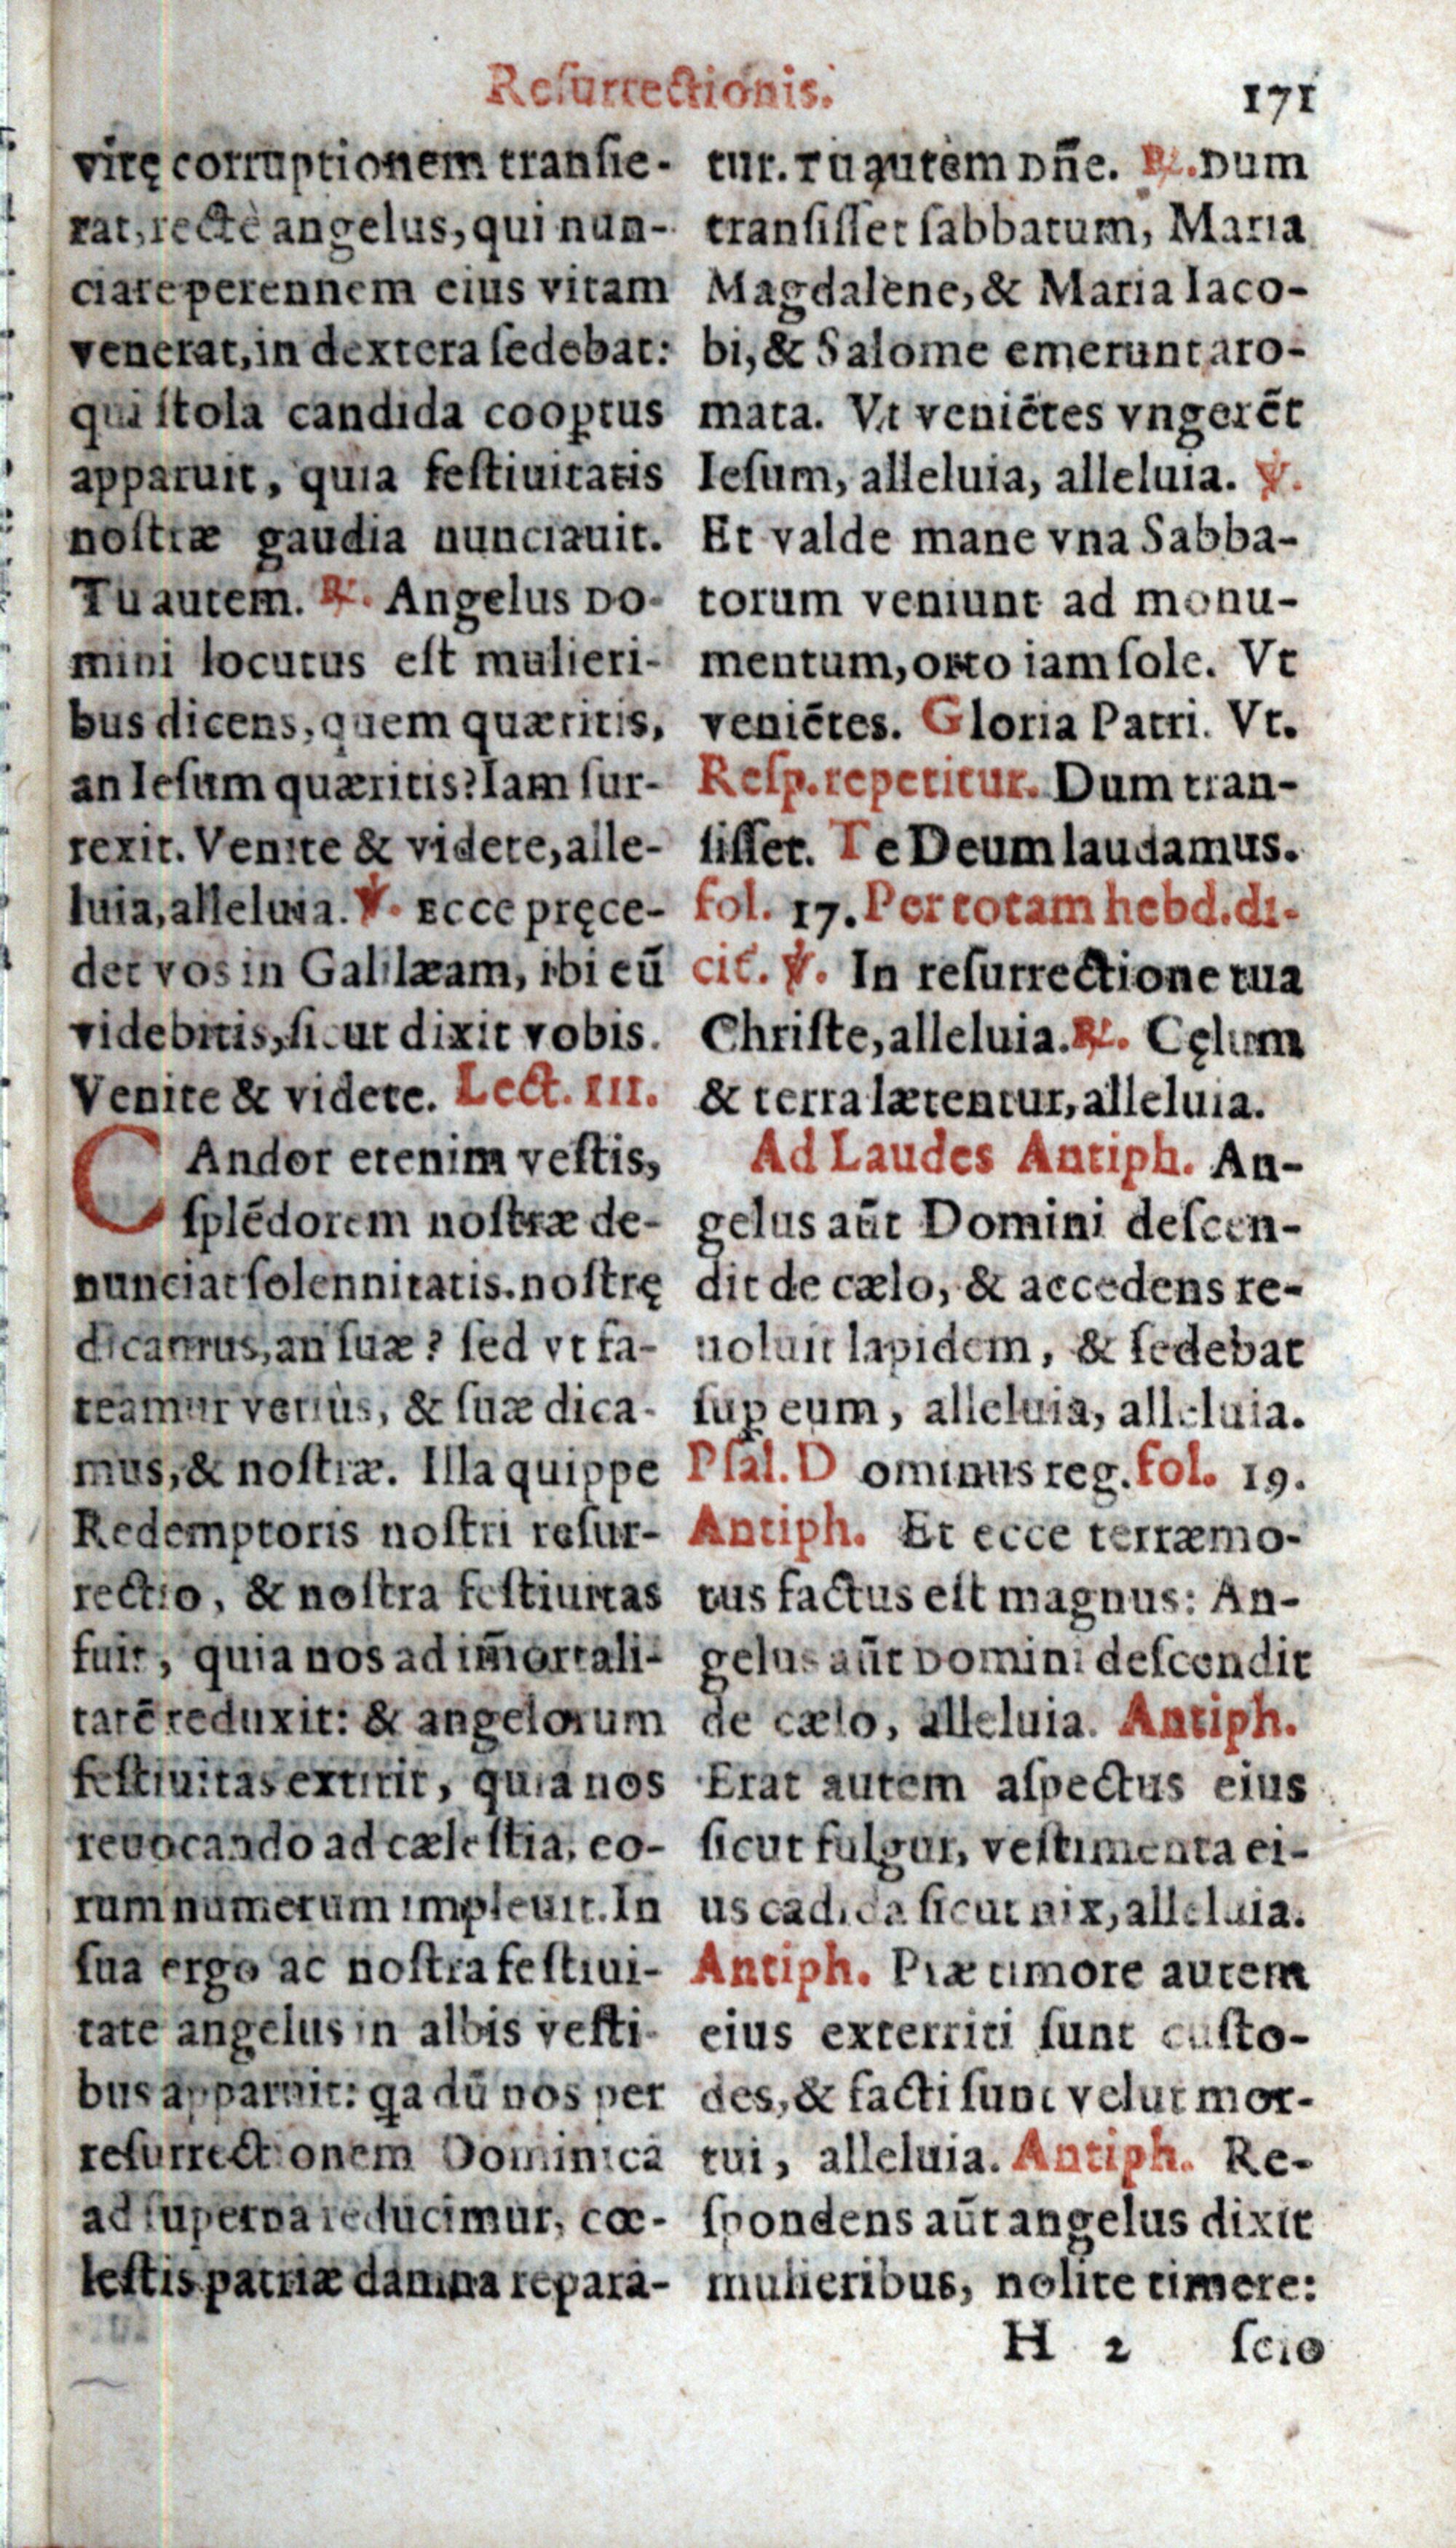 Resurrectionis. 171
vitę corruptionem transie-
rat, rectè angelus, qui nun-
ciare perennem eius vitam
venerat, in dextera sedebat:
qui stola candida coop̱tus
apparuit, quia festiuitatis
nostræ gaudia nunciauit.
Tu autem. ℟. Angelus Do-
mini locutus est mulieri-
bus dicens, quem quæritis,
an Iesum quæritis? Iam sur-
rexit. Venite & videte, alle-
luia, alleluia. ℣. Ecce pręce-
det vos in Galilæam, ibi eū
videbitis, sicut dixit vobis.
Venite & videte. Lect. III.
CAndor etenim vestis,
splēdorem nostræ de-
nunciat solennitatis. nostrę
dicamus, an suæ? sed vt fa-
teamur verius, & suæ dica-
mus, & nostræ. Illa quippe
Redemptoris nostri resur-
rectio, & nostra festiuitas
fuit, quia nos ad im̄ortali-
tatē reduxit: & angelorum
festiuitas extitit, quia nos
reuocando ad cælestia, eo-
rum numerum impleuit. In
sua ergo ac nostra festiui-
tate angelus in albis vesti-
bus apparuit: qa dū nos per
resurrectionem Dominicā
ad superna reducimur, cœ-
lestis patriæ damna repara-
tur. Tu autem Dn̄e. ℟. Dum
transisset sabbatum, Maria
Magdalene, & Maria Iaco-
bi, & Salome emerunt aro-
mata. Vt veniētes vngerēt
Iesum, alleluia, alleluia. ℣.
Et valde mane vna Sabba-
torum veniunt ad monu-
mentum, orto iam sole. Vt
veniētes. Gloria Patri. Vt.
Resp. repetitur. Dum tran-
sisset. Te Deum laudamus.
fol. 17. Per totam hebd. di-
cit. ℣. In resurrectione tua
Christe, alleluia. ℟. Cęlum
& terra lætentur, alleluia.
Ad Laudes Antiph. An-
gelus aūt Domini descen-
dit de cælo, & accedens re-
uoluit lapidem, & sedebat
sup̱ eum, alleluia, alleluia.
Psal. D ominus reg. fol. 19.
Antiph. Et ecce terræmo-
tus factus est magnus: An-
gelus aūt Domini descendit
de cælo, alleluia. Antiph.
Erat autem aspectus eius
sicut fulgur, vestimenta ei-
us cādida sicut nix, alleluia.
Antiph. Præ timore autem
eius exterriti sunt custo-
des, & facti sunt velut mor-
tui, alleluia. Antiph. Re-
spondens aūt angelus dixit
mulieribus, nolite timere:
H 2 scio